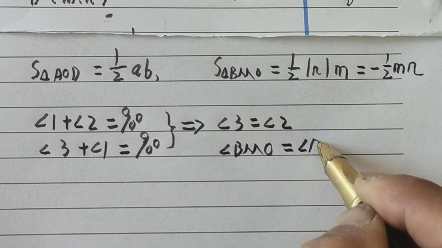 S△AOD = 1/2 ab, S△BMO = 1/2 |n| m = -1/2 mn
∠1+∠2 = 90° } ⇒ ∠3 = ∠2
∠3+∠1 = 90° } ∠BMO = ∠1